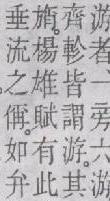 游者一旁六游
齊軫皆謂游。其
旒楊雄賦有此
垂流之。如弁